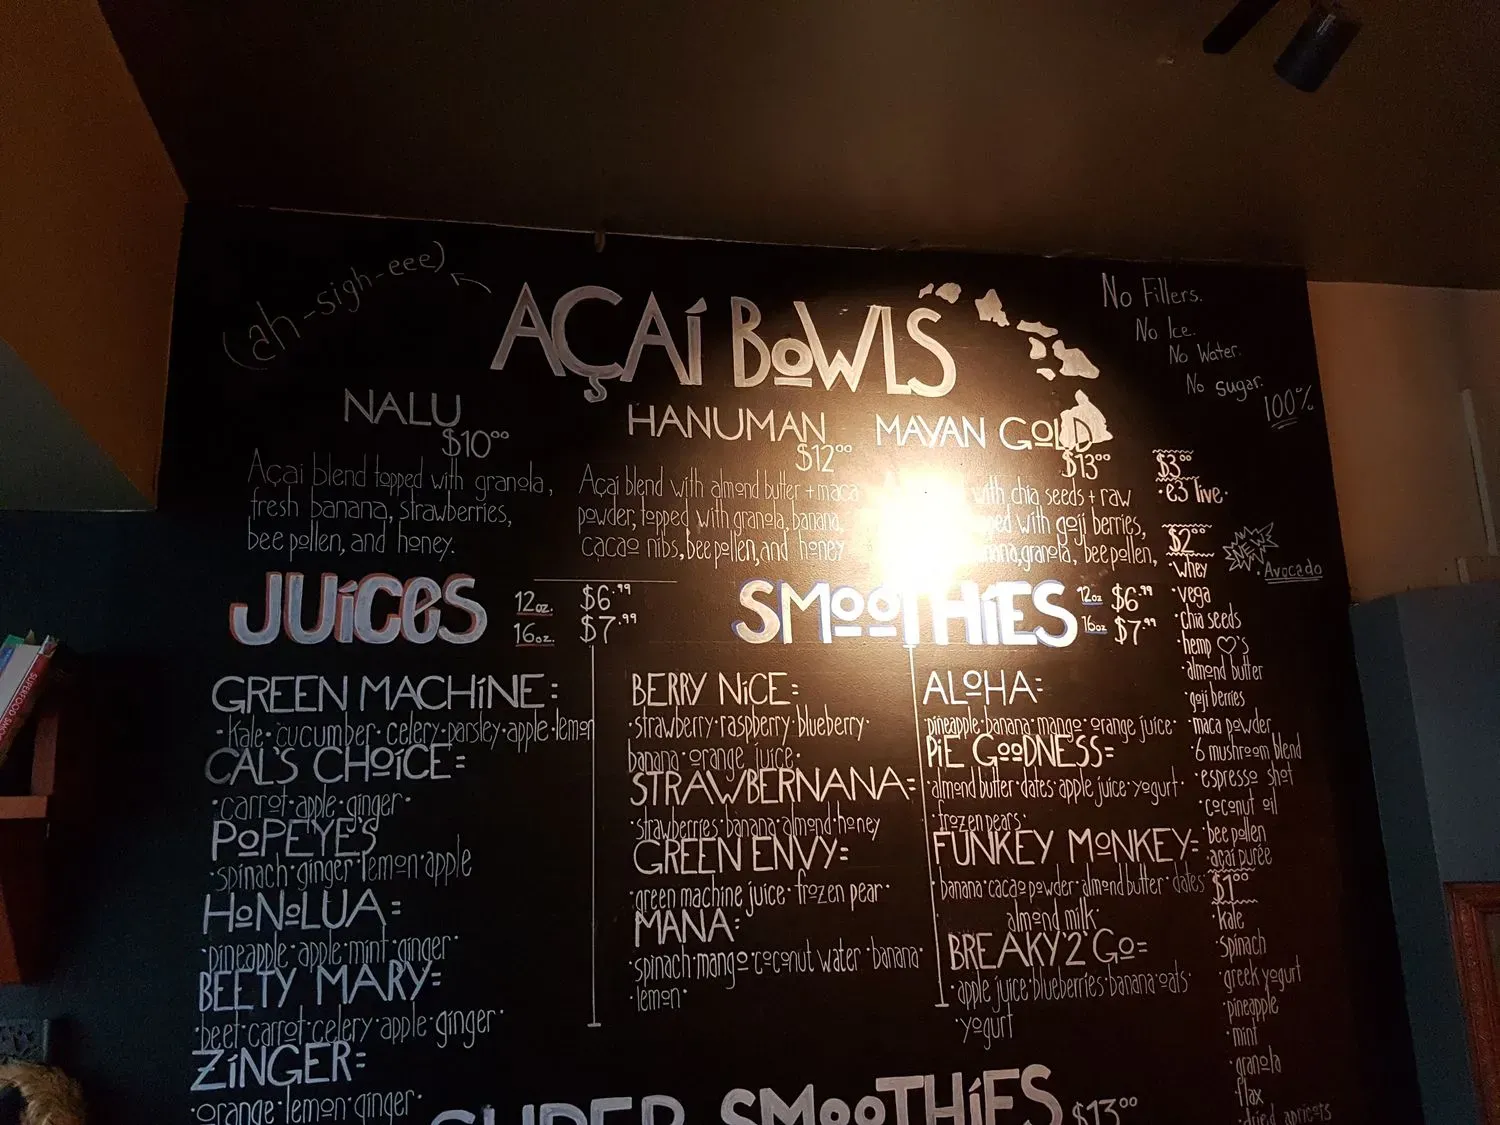 (ah-sigh-eee)
AÇAí BoWLS
No Fillers.
No Ice.
No Water.
No sugar.
100%
NALU
$10⁰⁰
Açai blend topped with granola,
fresh banana, strawberries,
bee pollen, and honey.
HANUMAN
$12⁰⁰
Açai blend with almond butter + maca
powder, topped with granola, banana,
cacao nibs, bee pollen, and honey
MAYAN GoLD
$13⁰⁰
with chia seeds + raw
with goji berries,
granola, bee pollen,
JUiCeS
12oz. $6.⁹⁹
16oz. $7.⁹⁹
GREEN MACHiNE:
·kale·cucumber·celery·parsley·apple·lemon
CAL'S CHoiCE:
·carrot·apple·ginger·
PoPEYE'S
·spinach·ginger·lemon·apple
HoNoLUA:
·pineapple·apple·mint·ginger·
BEETY MARY:
·beet·carrot·celery·apple·ginger·
ZiNGER:
·orange·lemon·ginger·
SMooTHiES
12oz $6.⁹⁹
16oz $7.⁹⁹
BERRY NiCE:
·strawberry·raspberry·blueberry·
banana·orange juice·
STRAWBERNANA:
·strawberries·banana·almond·honey
GREEN ENVY:
·green machine juice·frozen pear·
MANA:
·spinach·mango·coconut water·banana·
·lemon·
ALoHA:
pineapple·banana·mango·orange juice·
PiE GooDNESS:
·almond butter·dates·apple juice·yogurt·
·frozen pears·
FUNKEY MoNKEY:
·banana·cacao powder·almond butter·dates·
almond milk·
BREAKY 2 Go:
·apple juice·blueberries·banana·oats·
·yogurt
$3⁰⁰
·e3 live·
$2⁰⁰
·Avocado
·whey
·vega
·chia seeds
·hemp ♡'s
·almond butter
·goji berries
·maca powder
·6 mushroom blend
·espresso shot
·coconut oil
·bee pollen
·açai purée
$1⁰⁰
·kale
·spinach
·greek yogurt
·pineapple
·mint
·granola
·flax
·dried apricots
SUPER SMooTHiES $13⁰⁰